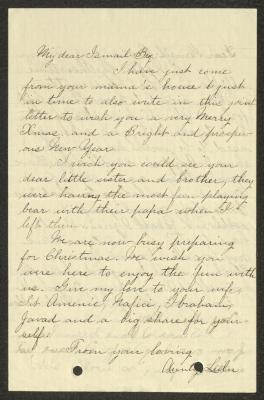 My dear Ismail Bey
I have just come
from your mama's house & just
in time to also write in this joint
letter to wish you a very Merry
Xmas and a Bright and prosper-
ous New Year.
I wish you could see your
dear little sister and brother, they
were having the most fun playing
bear with their papa when I
left them.
We are now busy preparing
for Christmas. We wish you
were here to enjoy the fun with
us. Give my love to your wife,
Sit Amenie, Ibraham,
Javad and a big share for your-
self.
From your loving
Aunty